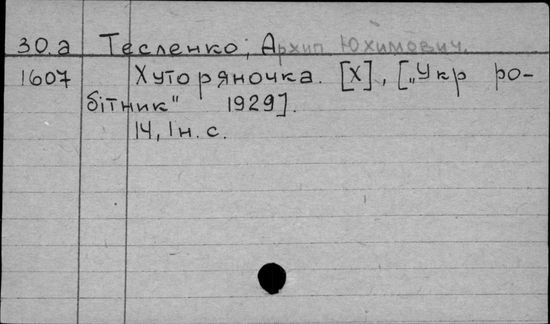 30.а Тесленко, Архип Юхимович.
1607 Хуторяночка. [Х], [„Укр ро-
бітник" 1929].
14, 1н. с.